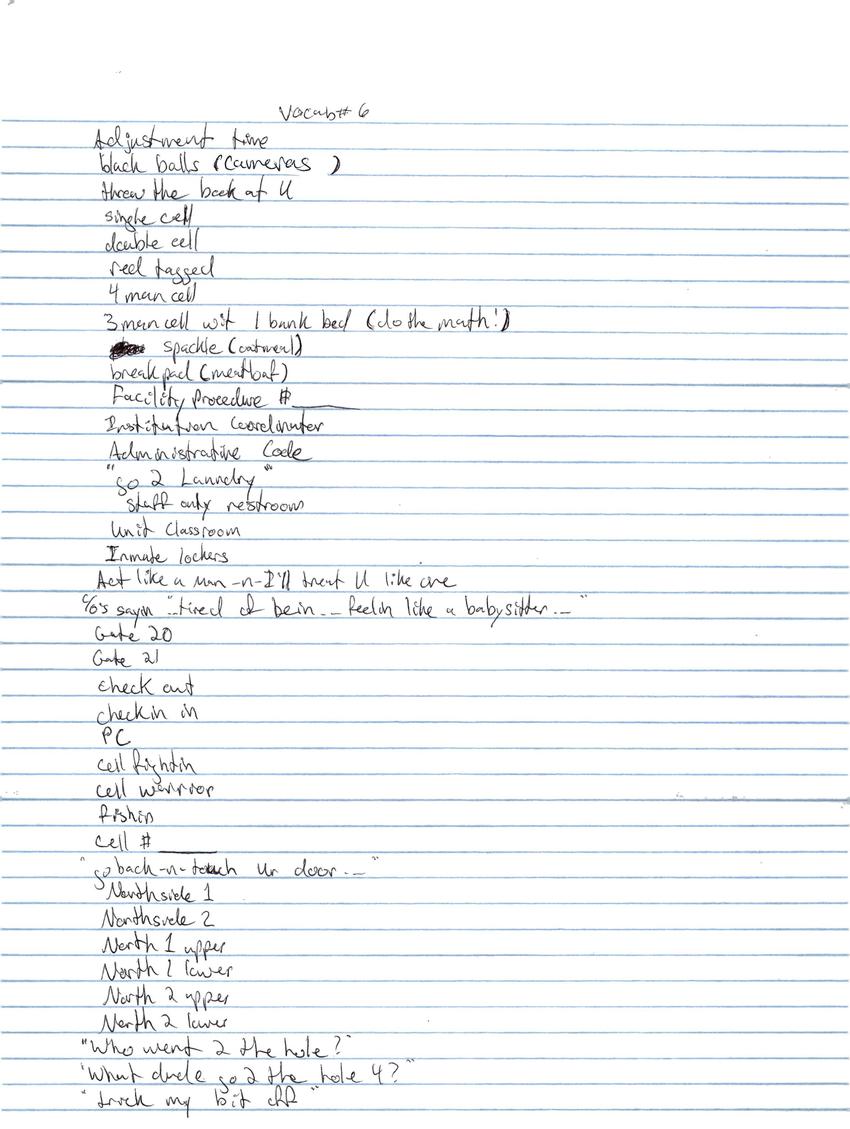 Vocab# 6
Adjustment time
black balls (cameras )
threw the book at U
single cell
double cell
red tagged
4 man cell
3 man cell wit 1 bunk bed (do the math!)
spackle (oatmeal)
break pad (meatloaf)
Facility Procedure #______
Institution Coordinator
Administrative Code
"go 2 Laundry"
Staff only restroom
Unit Classroom
Inmate lockers
Act like a man -n- I'll treat U like one
C/O's sayin "...tired of bein... feelin like a babysitter..."
Gate 20
Gate 21
check out
checkin in
PC
cell fightin
cell warrior
fishin
cell # ______
"go back-n-touch ur door..."
Northside 1
Northside 2
North 1 upper
North 1 lower
North 2 upper
North 2 lower
"Who went 2 the hole?"
"What dude go 2 the hole 4?"
"truck my bit off"